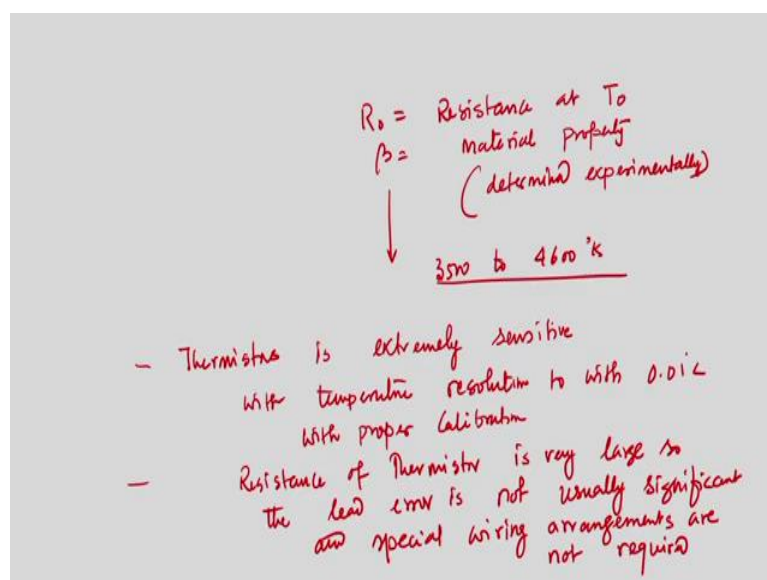 R₀ = Resistance at T₀
β = material property
(determined experimentally)
3500 to 4600 °K
- Thermistor is extremely sensitive
with temperature resolution to with 0.01c
with proper Calibration
- Resistance of Thermistor is very large so
the lead error is not usually significant
and special wiring arrangements are
not required